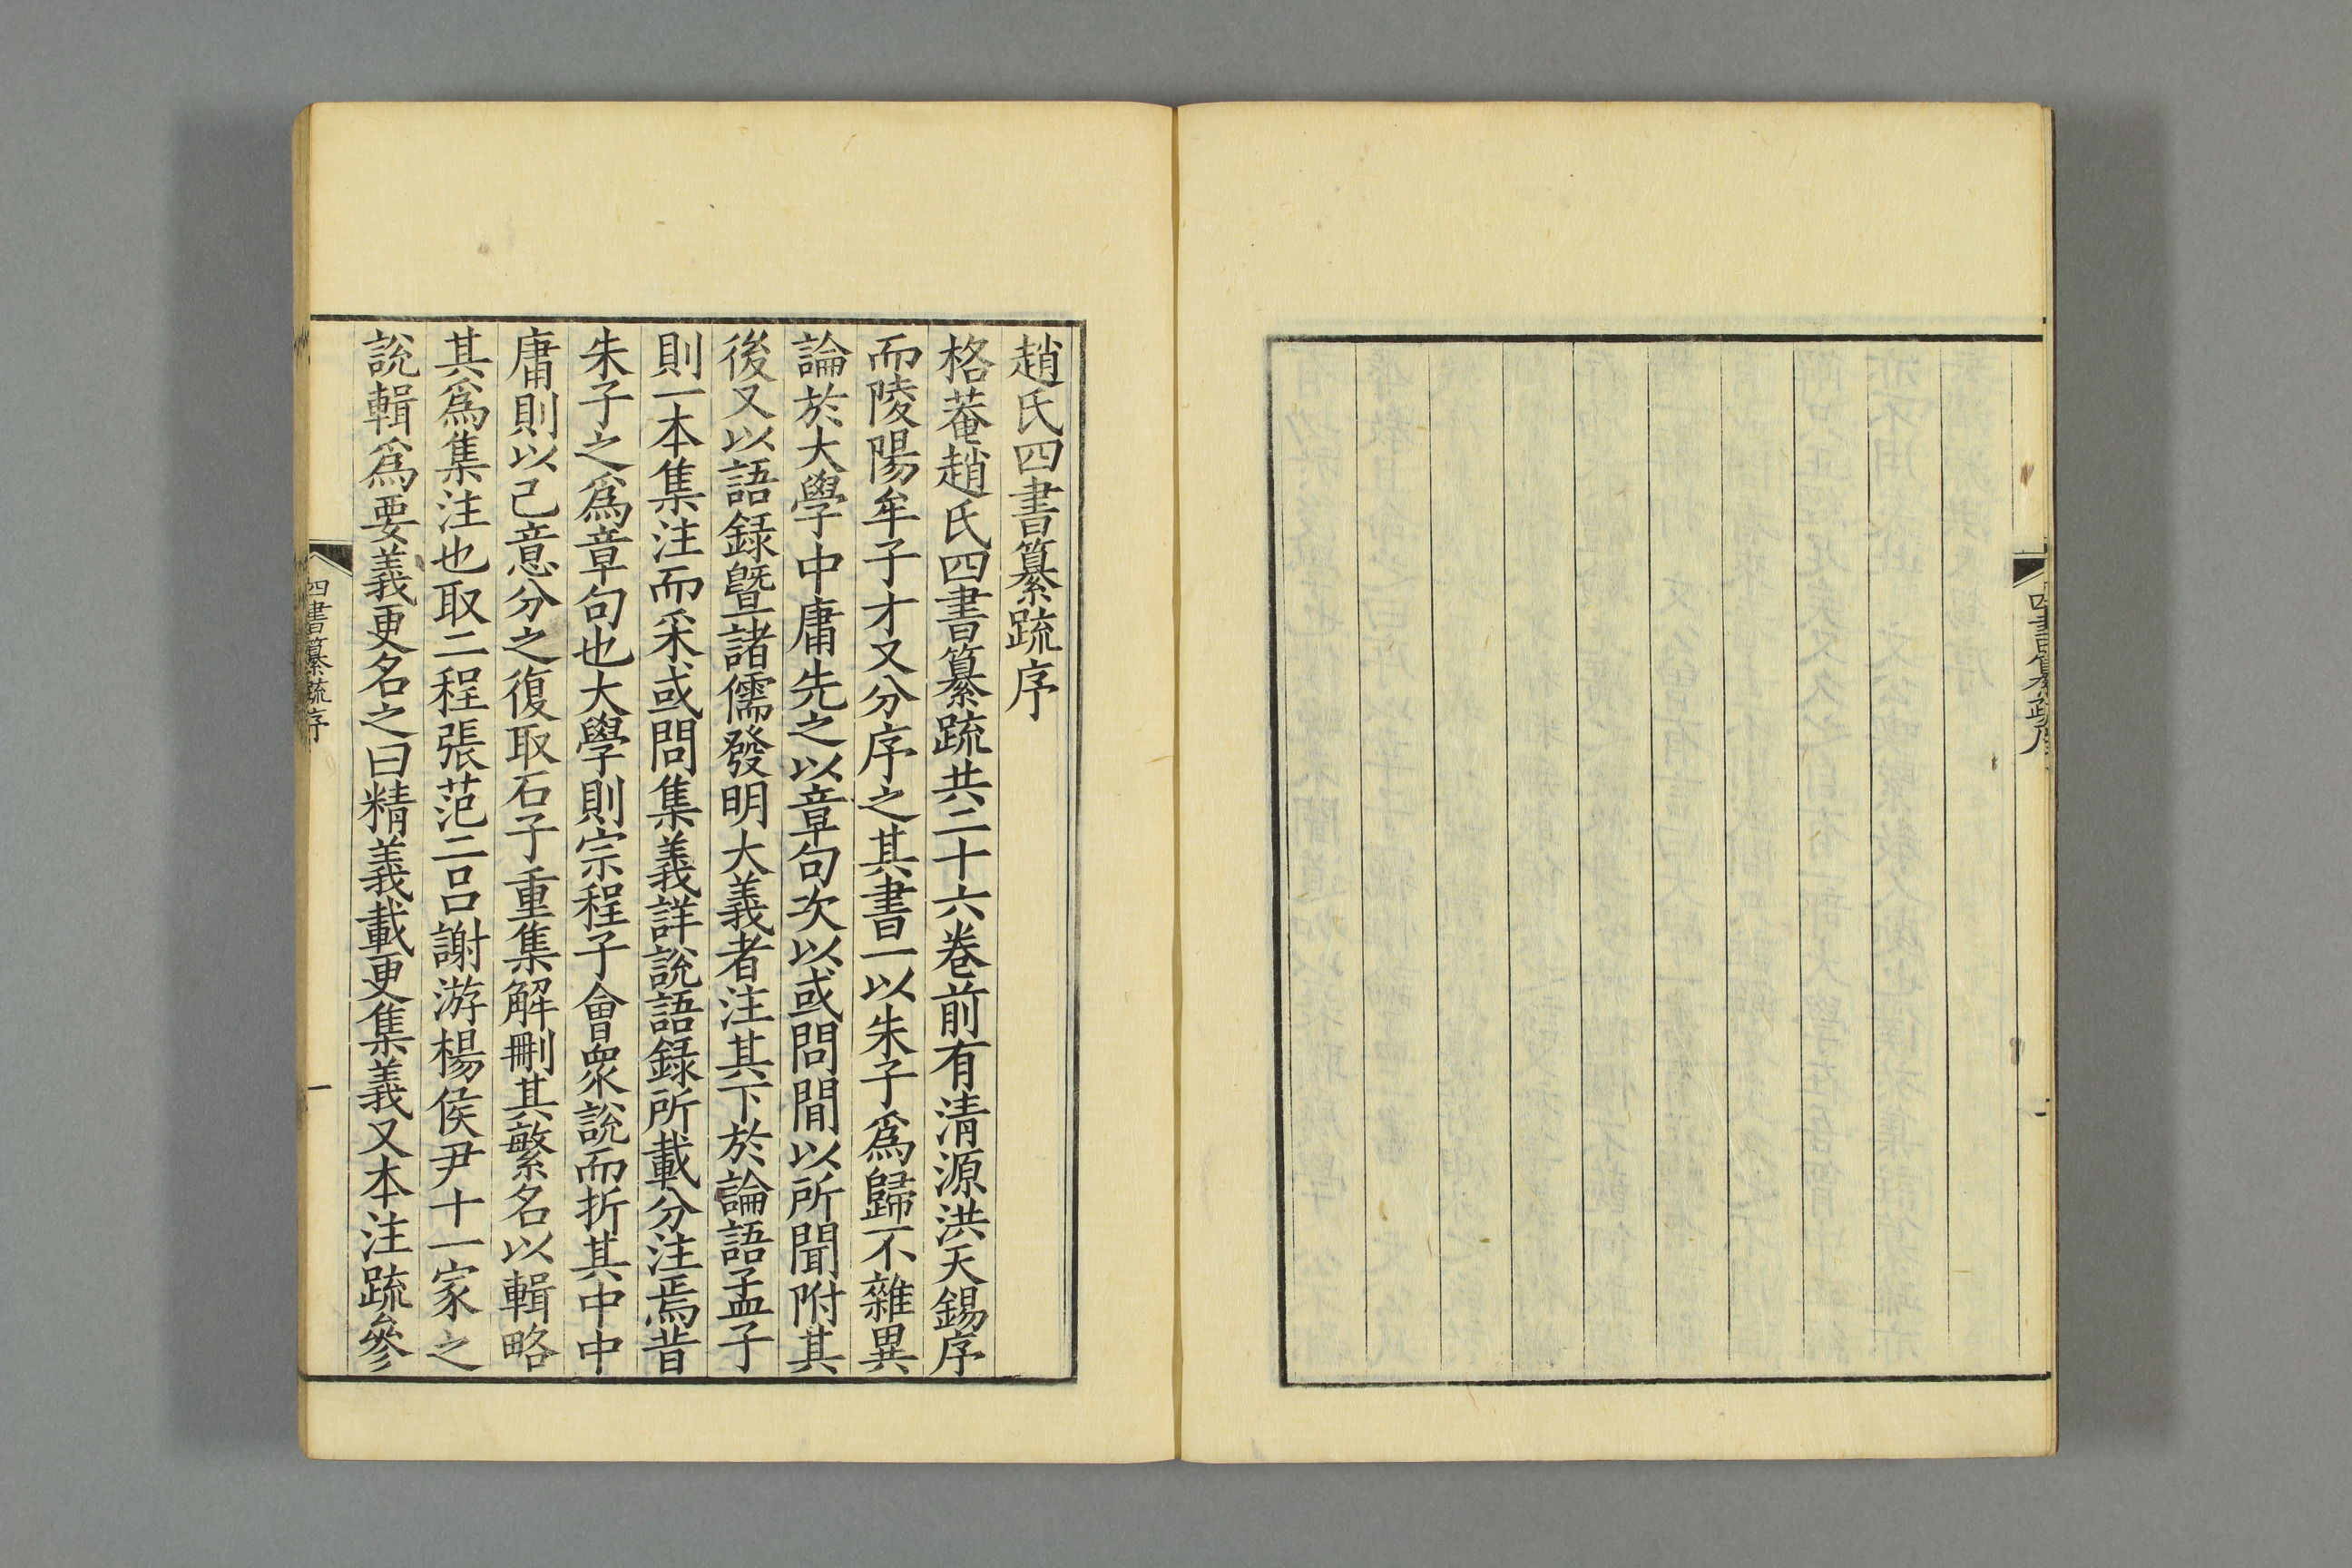 四書纂疏序
一
趙氏四書纂疏序
格菴趙氏四書纂疏共二十六卷前有清源洪天錫序
而陵陽牟子才又分序之其書一以朱子爲歸不雜異
論於大學中庸先之以章句次以或問間以所聞附其
後又以語録曁諸儒發明大義者注其下於論語孟子
則一本集注而采或問集義詳說語録所載分注焉昔
朱子之爲章句也大學則宗程子會衆說而折其中中
庸則以己意分之復取石子重集解刪其繁名以輯略
其爲集注也取二程張范二呂謝游楊侯尹十一家之
說輯爲要義更名之曰精義載更集義又本注疏參
四書纂疏序
一